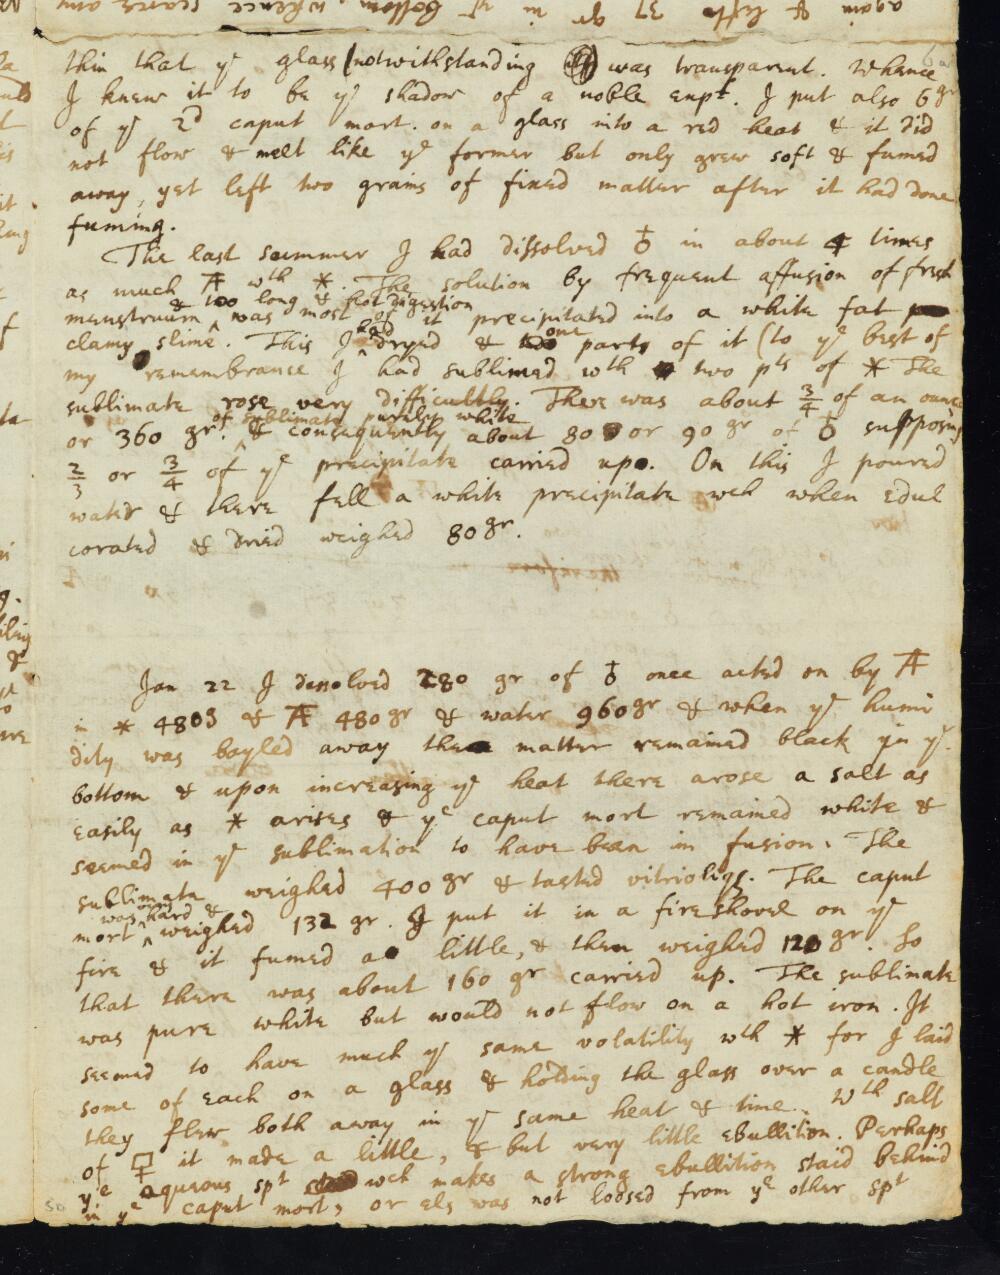 thin that yͤ glass (notwithstanding was transparent. Whence
I knew it to be yͤ shadow of a noble expt. I put also 6 gr
of yͤ 2d caput mort. on a glass into a red heat & it did
not flow & melt like yͤ former but only grew soft & fumed
away, yet left two grains of fixed matter after it had done
fuming.
The last summer I had dissolved ♁ in about 4 times
as much wth ✶. The solution by frequent affusion of fresh
& too long & hot digestion
menstruum ‸ was most of it precipitated into a white fat
clamy slime. This I ‸ had dryed & one part of it (to yͤ best of
my remembrance I had sublimed wth two pts of ✶ The
sublimate rose very difficultly. There was about 3/4 of an ounce
of sublimate purely white
or 360 gr. ‸ & consequently about 80 or 90 gr of ♁ supposing
2/3 or 3/4 of yͤ precipitate carried up. On this I poured
water & there fell a white precipitate wch when edul
corated & dried weighed 80 gr.
Jan 22 I dissolved 280 gr of ♁ once acted on by
in ✶ 480 & 480 gr & water 960 gr & when yͤ humi
dity was boyled away the matter remained black in yͤ
bottom & upon increasing yͤ heat there arose a salt as
easily as ✶ arises & yͤ caput mort remained white &
seemed in yͤ sublimation to have been in fusion. The
sublimate weighed 400 gr & tasted vitrioliq. The caput
was hard &
mort ‸ weighed 132 gr. I put it in a fire shovel on yͤ
fire & it fumed a little, & then weighed 120 gr. So
that there was about 160 gr carried up. The sublimate
was pure white but would not flow on a hot iron. It
seemed to have much yͤ same volatility wth ✶ for I laid
some of each on a glass & holding the glass over a candle
they flew both away in yͤ same heat & time. Wth salt
of it made a little, & but very little ebullition. Perhaps
yͤ aqueous spt wch makes a strong ebullition staid behind
in yͤ caput mort, or els was not loosed from yͤ other spt